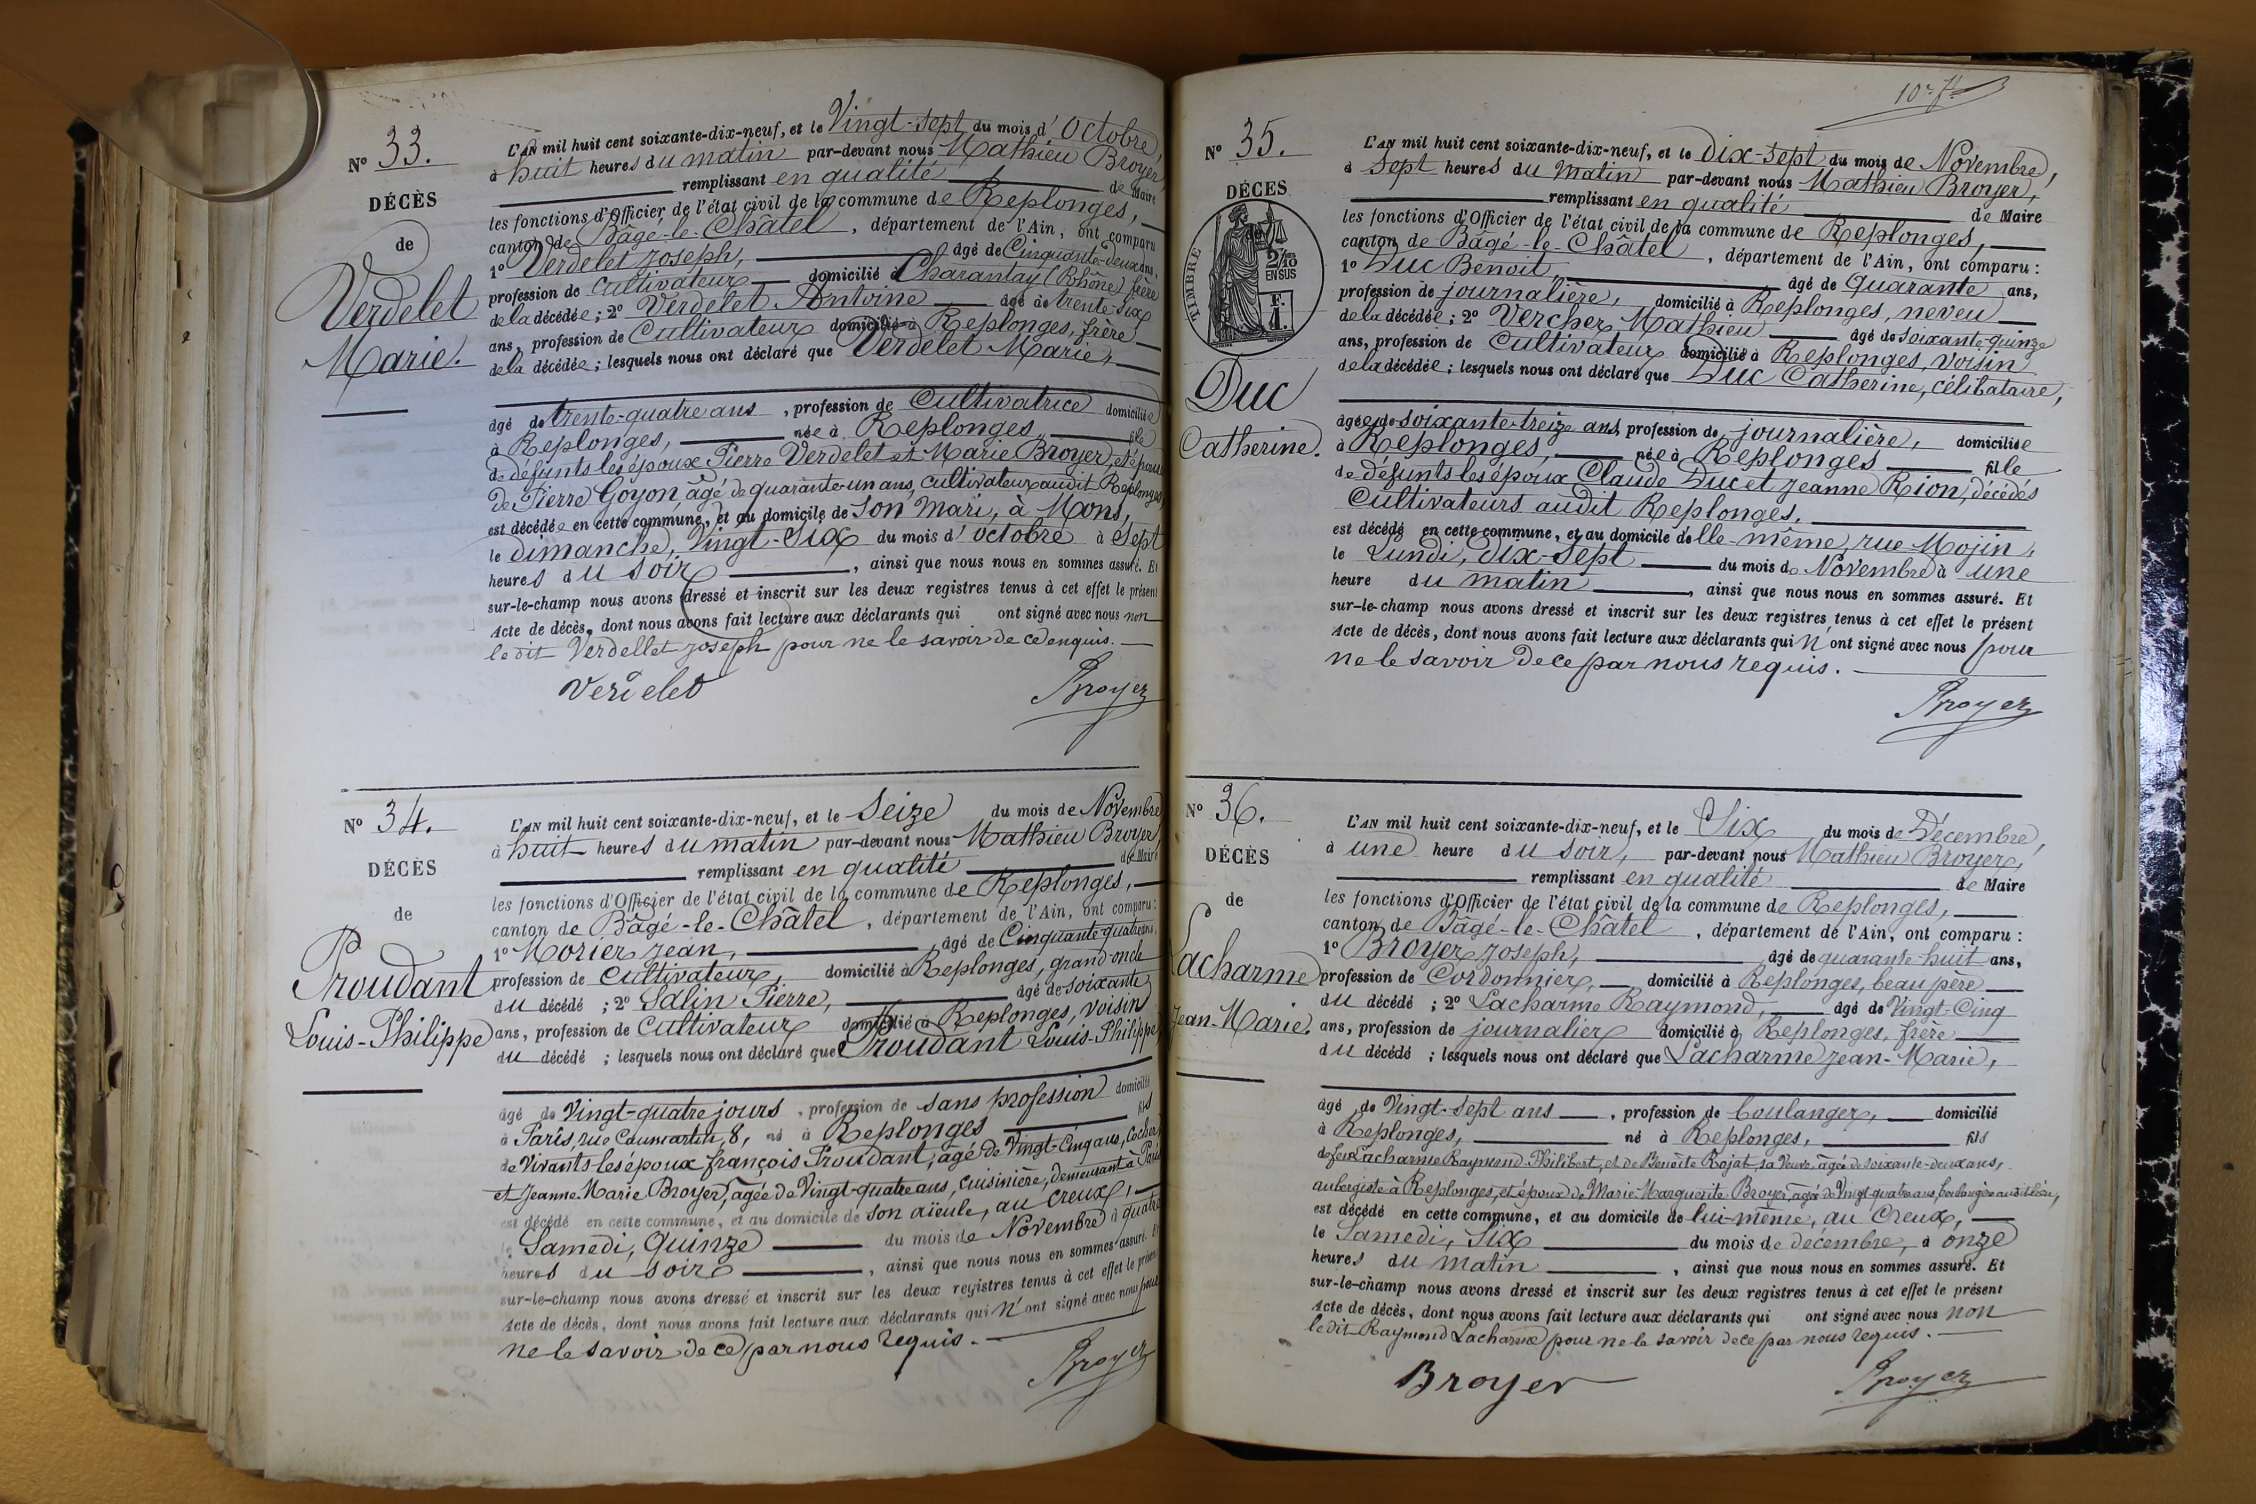 N° 33.
DÉCÈS
de
Verdelet
Marie.
L'AN mil huit cent soixante-dix-neuf, et le Vingt-sept du mois d'Octobre,
à huit heures du matin par-devant nous Mathieu Broyer,
remplissant en qualité de Maire
les fonctions d'Officier de l'état civil de la commune de Replonges,
canton de Bâgé-le-Châtel, département de l'Ain, ont comparu
1° Verdelet Joseph, âgé de Cinquante-deux ans,
profession de cultivateur domicilié à Charantay (Rhône) frère
de la décédée ; 2° Verdelet Antoine âgé de trente-six
ans, profession de Cultivateur domicilié à Replonges, frère
de la décédée ; lesquels nous ont déclaré que Verdelet Marie,
âgé de trente-quatre ans, profession de Cultivatrice domiciliée
à Replonges, née à Replonges fille
de défunts les époux Pierre Verdelet et Marie Broyer, et épouse
de Pierre Goyon âgé de quarante-un ans, cultivateur audit Replonges,
est décédée en cette commune, et au domicile de son mari, à Mons,
le dimanche, vingt-six du mois d'octobre à sept
heures du soir, ainsi que nous nous en sommes assuré. Et
sur-le-champ nous avons dressé et inscrit sur les deux registres tenus à cet effet le présent
Acte de décès, dont nous avons fait lecture aux déclarants qui ont signé avec nous non
le dit Verdellet Joseph pour ne le savoir de ce enquis.
Verdelet Broyer
N° 34.
DÉCÈS
de
Proudant
Louis-Philippe
L'AN mil huit cent soixante-dix-neuf, et le Seize du mois de Novembre
à huit heures du matin par-devant nous Mathieu Broyer,
remplissant en qualité de Maire
les fonctions d'Officier de l'état civil de la commune de Replonges,
canton de Bâgé-le-Châtel, département de l'Ain, ont comparu :
1° Morier Jean, âgé de Cinquante quatre ans,
profession de Cultivateur, domicilié à Replonges, grand-oncle
du décédé ; 2° Salin Pierre, âgé de soixante
ans, profession de Cultivateur domicilié à Replonges, voisin
du décédé ; lesquels nous ont déclaré que Proudant Louis-Philippe
âgé de Vingt-quatre jours, profession de sans profession domicilié
à Paris, rue Caumartin, 8, né à Replonges fils
de Vivants les époux françois Proudant, âgé de Vingt-Cinq ans, Cocher
et Jeanne-Marie Broyer, âgée de Vingt-quatre ans, cuisinière, demeurant à Paris
est décédé en cette commune, et au domicile de son aïeule, au Creux,
le Samedi, Quinze du mois de Novembre à quatre
heures du soir, ainsi que nous nous en sommes assuré. Et
sur-le-champ nous avons dressé et inscrit sur les deux registres tenus à cet effet le présent
Acte de décès, dont nous avons fait lecture aux déclarants qui n'ont signé avec nous pour
ne le savoir de ce par nous requis.
Broyer
10e ft
N° 35.
DÉCÈS
TIMBRE
2/10 EN SUS
F. 1.
Duc
Catherine.
L'AN mil huit cent soixante-dix-neuf, et le dix-sept du mois de Novembre,
à Sept heures du matin par-devant nous Mathieu Broyer,
remplissant en qualité de Maire
les fonctions d'Officier de l'état civil de la commune de Replonges,
canton de Bâgé-le-Châtel, département de l'Ain, ont comparu :
1° Duc Benoit âgé de Quarante ans,
profession de journalière, domicilié à Replonges, neveu
de la décédée ; 2° Vercher Mathieu âgé de soixante quinze
ans, profession de Cultivateur domicilié à Replonges, voisin
de la décédée ; lesquels nous ont déclaré que Duc Catherine, célibataire,
âgée de soixante-treize ans, profession de journalière, domiciliée
à Replonges, née à Replonges fille
de défunts les époux Claude Duc et Jeanne Rion, décédés
cultivateurs audit Replonges,
est décédé en cette commune, et au domicile d'elle-même, rue Mojin,
le Lundi, dix-sept du mois de Novembre à une
heure du matin, ainsi que nous nous en sommes assuré. Et
sur-le-champ nous avons dressé et inscrit sur les deux registres tenus à cet effet le présent
Acte de décès, dont nous avons fait lecture aux déclarants qui n'ont signé avec nous pour
ne le savoir de ce par nous requis.
Broyer
N° 36.
DÉCÈS
de
Lacharme
Jean-Marie.
L'AN mil huit cent soixante-dix-neuf, et le Six du mois de Décembre,
à une heure du soir, par-devant nous Mathieu Broyer,
remplissant en qualité de Maire
les fonctions d'Officier de l'état civil de la commune de Replonges,
canton de Bâgé-le-Châtel, département de l'Ain, ont comparu :
1° Broyer Joseph, âgé de quarante-huit ans,
profession de Cordonnier, domicilié à Replonges, beau père
du décédé ; 2° Lacharme Raymond, âgé de Vingt-Cinq
ans, profession de journalier domicilié à Replonges, frère
du décédé ; lesquels nous ont déclaré que Lacharme Jean-Marie,
âgé de Vingt-sept ans, profession de boulanger, domicilié
à Replonges, né à Replonges, fils
de feu Lacharme Raymond Philibert, et de Benoite Rojat, sa Veuve, âgée de soixante-deux ans,
aubergiste à Replonges, et époux de Marie Marguerite Broyer, âgée de Vingt quatre ans, boulangère audit lieu,
est décédé en cette commune, et au domicile de lui-même, au Creux,
le Samedi, Six du mois de décembre, à onze
heures du matin, ainsi que nous nous en sommes assuré. Et
sur-le-champ nous avons dressé et inscrit sur les deux registres tenus à cet effet le présent
Acte de décès, dont nous avons fait lecture aux déclarants qui ont signé avec nous non
le dit Raymond Lacharme pour ne le savoir de ce par nous requis.
Broyer Broyer